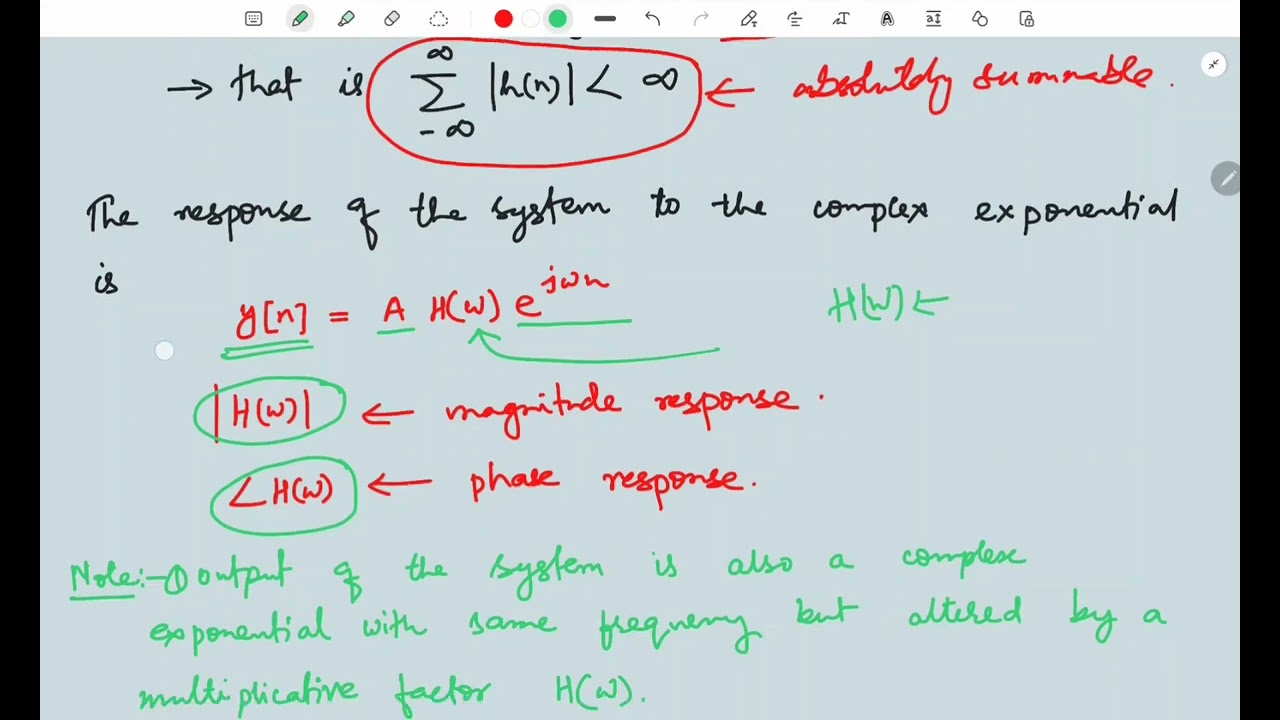 → that is ∑ |h(n)| < ∞ ← absolutely summable.
∞
- ∞
The response of the system to the complex exponential
is
y[n] = A H(w) e^jwn
H(w) ←
|H(w)| ← magnitude response.
∠H(w) ← phase response.
Note:-① output of the system is also a complex
exponential with same frequency but altered by a
multiplicative factor H(w).